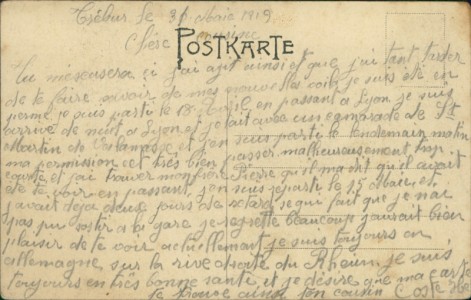 Trébur le 31 Maie 1919
Chère cousine
POSTKARTE
Tu m'excusera si j'ai agit ainsi et que j'ai tant tarder
de te faire savoir de mes nouvelles voila je suis été en
perme je suis parti le 18 Avril en passant a Lyon je suis
arrivé de nuit a Lyon et j'était avec un camarade de St
Martin de et j'en suis parti le lendemain matin
ma permission cet très bien passer malheureusement trop
courte et j'ai trouver mon frère Pierre qu'il ma dit qu'il avait
été te voir en passant, j'en suis reparti le 15 Maie et
j'avait déja deux jours de retard se qui fait que je n'ai
pas pu sortir a la gare je regrette beaucoup j'aurait bien
plaisir de te voir actuellemant je suis toujours en
allemagne sur la rive droite du Rheim je suis
toujours en très bonne santé et je désire que ma carte
te trouve ainsi ton cousin Coste